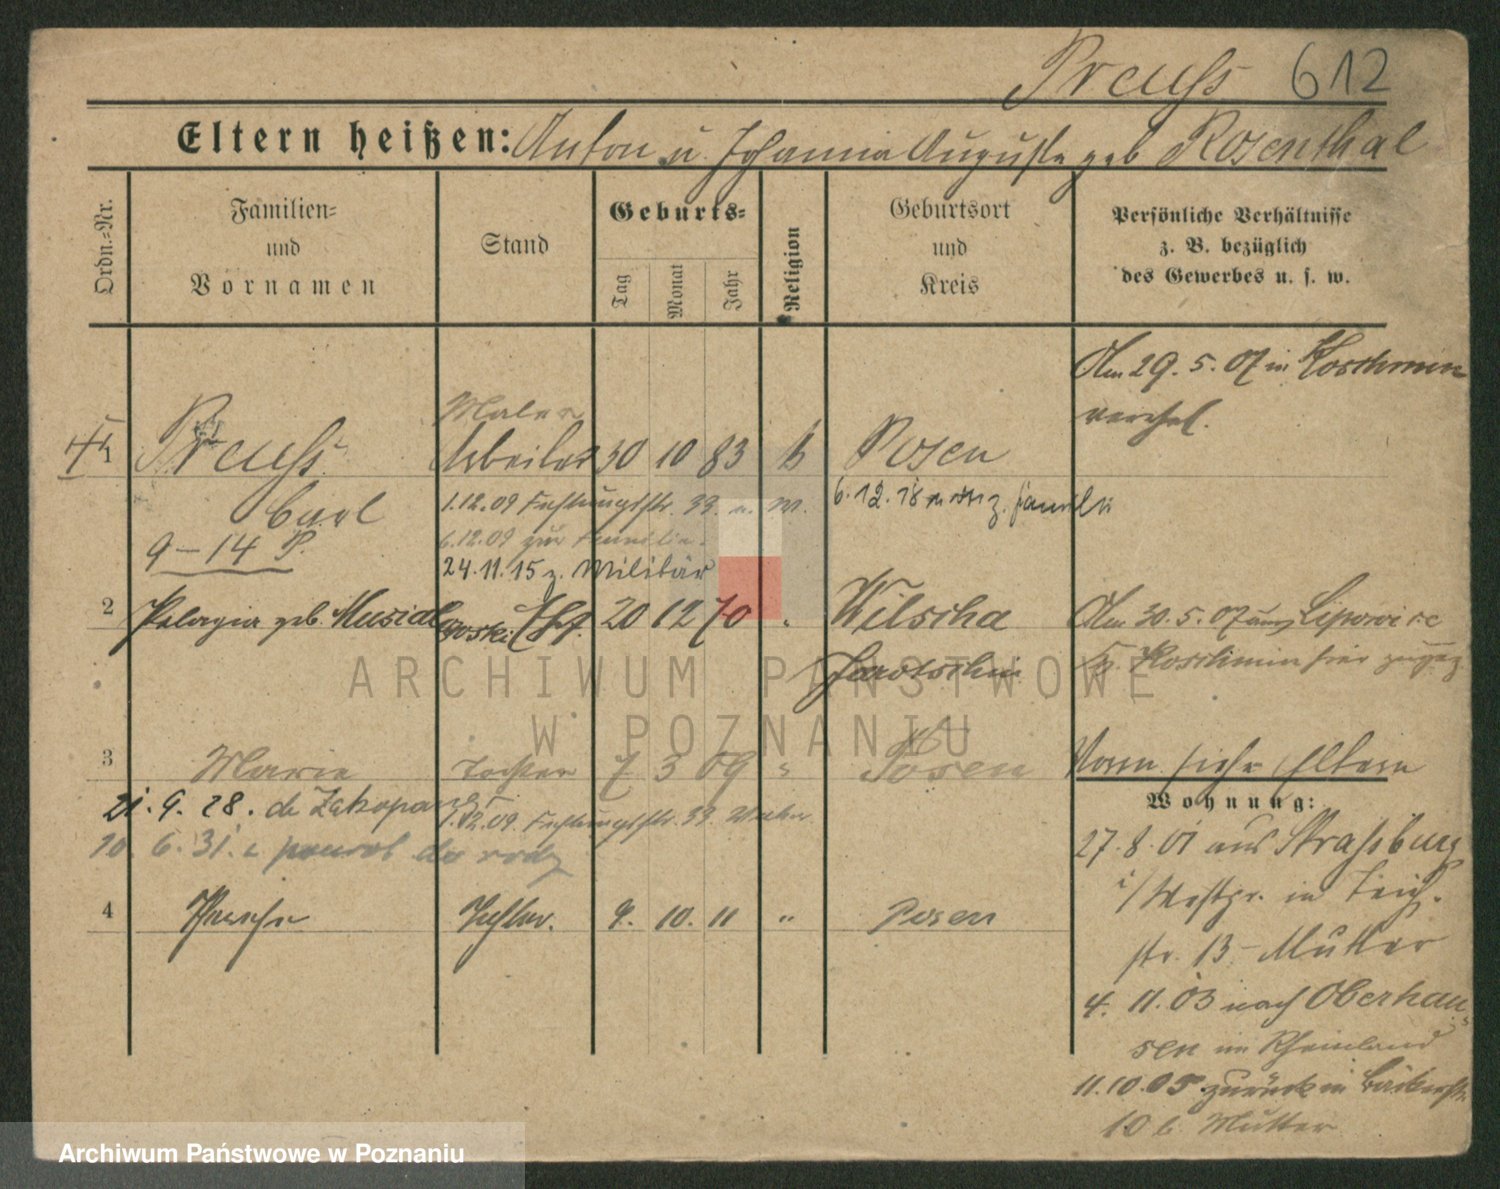 Preuß 612
Eltern heißen: Anton u. Johanna Auguste geb Rosenthal
Ordn.-Nr.
Familien-
und
Vornamen
Stand
Geburts-
Tag
Monat
Jahr
Religion
Geburtsort
und
Kreis
Persönliche Verhältnisse
z. B. bezüglich
des Gewerbes u. s. w.
Am 29. 5. 07 in Koschmin
verehel.
Maler
1 Preuß Arbeiter 30 10 83 k Posen
Carl
9-14 P.
1.12.09 39
6.12.09 zur Familie
24.11.15 z. Militär
6.12.18 z. Familie
2 Pelagia geb. Musialowski Ehf. 20 12 70 " Wilscha
Jarotschin
Am 30. 5. 07 aus Lipowiec
Koschmin hier zugez.
3 Marie Tochter 7 3 09 " Posen
21. 9. 28. do Zakopanego
1.12.09. 39
10. 6. 31. z powrot do rodz
4 Tochter. 9. 10. 11 " Posen
Vorm siehe Eltern
Wohnung:
27. 8. 01 aus Straßburg
i/Westpr. in Teich-
str. 13 - Mutter
4. 11. 03 nach Oberhau-
sen im Rheinland
11.10.05 zurück in Bäckerstr.
10 b. Mutter
ARCHIWUM PAŃSTWOWE
W POZNANIU
Archiwum Państwowe w Poznaniu